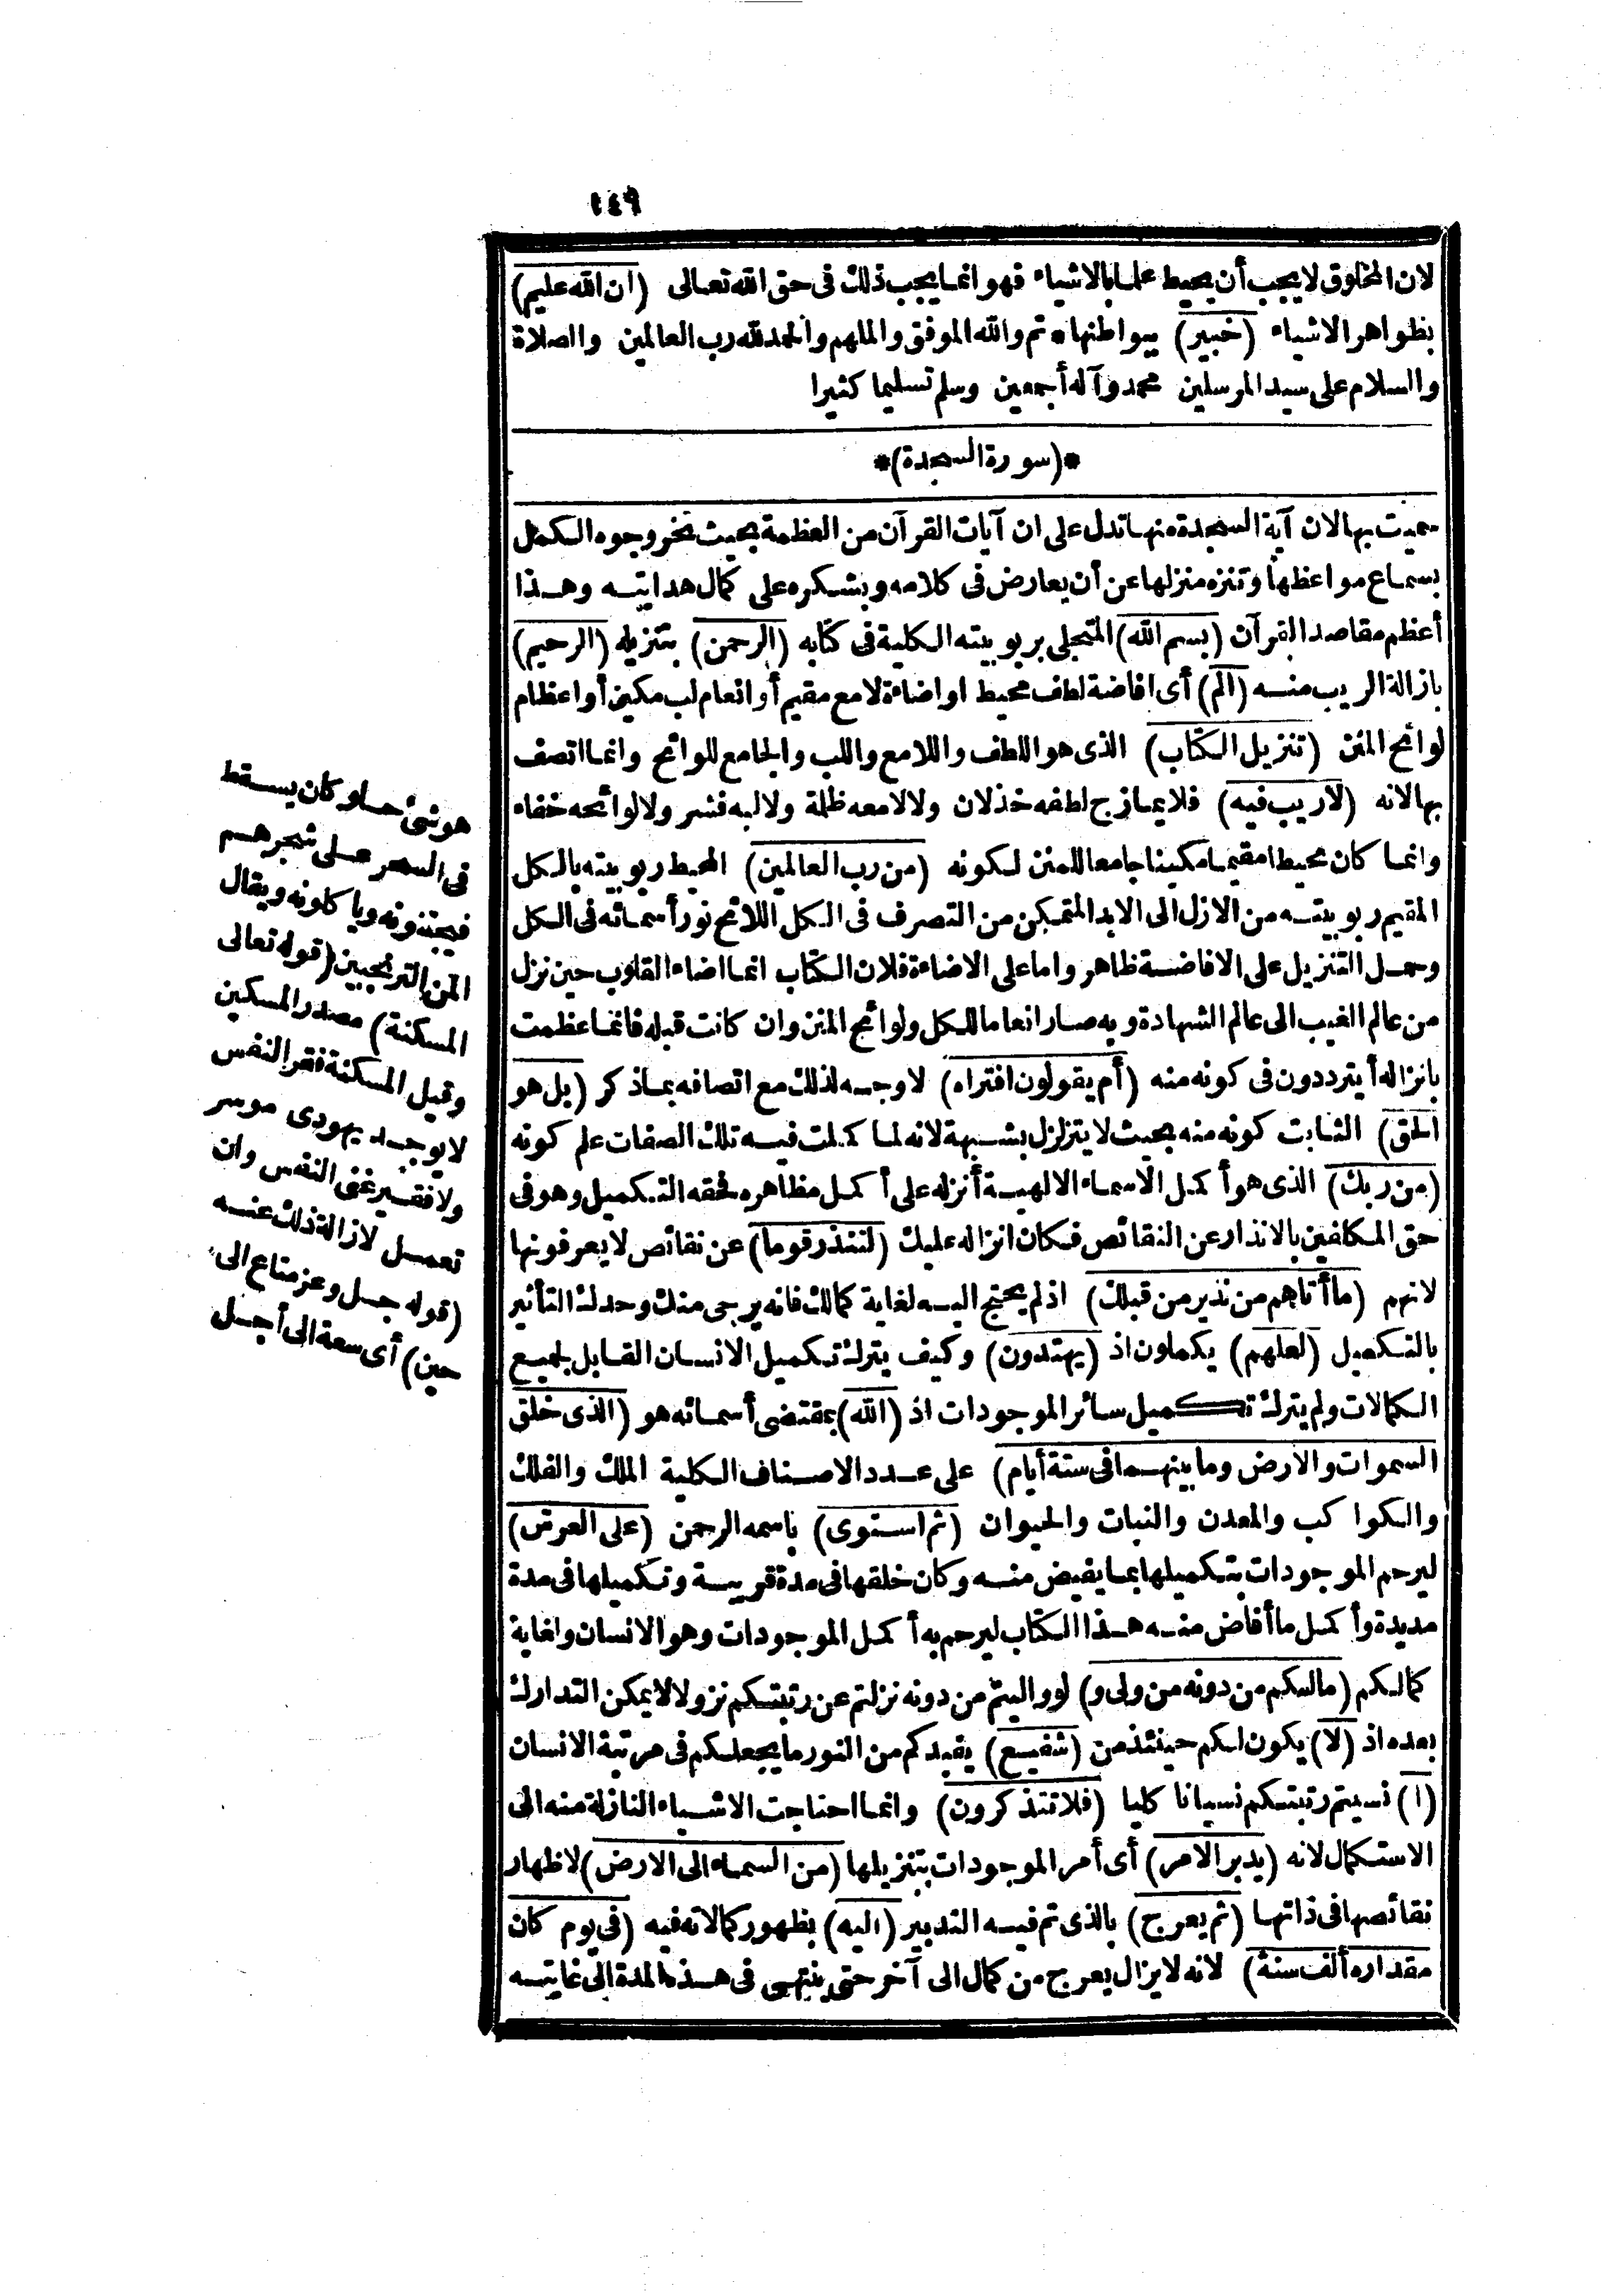 ١٤٩
لان المخلوق لا يجب أن يحيط علما بالاشياء فهو انما يجب ذلك فى حق الله تعالى (ان الله عليم)
بظواهر الاشياء (خبير) ببواطنها * تم والله الموفق والملهم والحمد لله رب العالمين والصلاة
والسلام على سيد المرسلين محمد وآله أجمعين وسلم تسليما كثيرا
*(سورة السجدة)*
سميت بها لان آية السجدة منها تدل على ان آيات القرآن من العظمة بحيث تخر وجوه الكمل
بسماع مواعظها وتنزه منزلها عن أن يعارض فى كلامه وبشكره على كمال هدايته وهذا
أعظم مقاصد القرآن (بسم الله) المتجلى بربوبيته الكلية فى كتابه (الرحمن) بتنزيله (الرحيم)
بازالة الريب منه (الم) أى افاضة لطف محيط او اضاءة لامع مقيم أو انعام لب مكين أو اعظام
لوائح المنن (تنزيل الكتاب) الذى هو اللطف واللامع واللب والجامع للوائح وانما اتصف
بها لانه (لا ريب فيه) فلا يمازج لطفه خذلان ولا لامعه ظلمة ولا لبه قشر ولا لوائحه خفاء
وانما كان محيطا مقيما مكينا جامعا للمنن لكونه (من رب العالمين) المحيط ربوبيته بالكل
المقيم ربوبيته من الازل الى الابد المتمكن من التصرف فى الكل اللائح نور أسمائه فى الكل
وحمل التنزيل على الافاضة ظاهر واما على الاضاءة فلان الكتاب انما اضاء القلوب حين نزل
من عالم الغيب الى عالم الشهادة وبه صار انعاما للكل ولوائح المنن وان كانت قبله فانما عظمت
بانزاله أيترددون فى كونه منه (أم يقولون افتراه) لا وجه لذلك مع اتصافه بما ذكر (بل هو
الحق) الثابت كونه منه بحيث لا يتزلزل بشبهة لانه لما كملت فيه تلك الصفات علم كونه
(من ربك) الذى هو أكمل الاسماء الالهية أنزله على أكمل مظاهره فحقه التكميل وهو فى
حق المكلفين بالانذار عن النقائص فكان انزاله عليك (لتنذر قوما) عن نقائص لا يعرفونها
لانهم (ما أتاهم من نذير من قبلك) اذ لم يحتج اليه لغاية كمالك فانه يرجى منك وحدك التأثير
بالتكميل (لعلهم) يكملون اذ (يهتدون) وكيف يترك تكميل الانسان القابل لجميع
الكمالات ولم يترك تكميل سائر الموجودات اذ (الله) بمقتضى أسمائه هو (الذى خلق
السموات والارض وما بينهما فى ستة أيام) على عدد الاصناف الكلية الملك والفلك
والكواكب والمعدن والنبات والحيوان (ثم استوى) باسمه الرحمن (على العرش)
ليرحم الموجودات بتكميلها بما يفيض منه وكان خلقها فى مدة قريبة وتكميلها فى مدة
مديدة وأكمل ما أفاض منه هذا الكتاب ليرحم به أكمل الموجودات وهو الانسان ولغاية
كمالكم (مالكم من دونه من ولى و) لو واليتم من دونه نزلتم عن رتبتكم نزولا لا يمكن التدارك
بعده اذ (لا) يكون لكم حينئذ من (شفيع) يفيدكم من النور ما يجعلكم فى مرتبة الانسان
(ا) نسيتم رتبتكم نسيانا كليا (فلا تتذكرون) وانما احتاجت الاشياء النازلة منه الى
الاستكمال لانه (يدبر الامر) أى أمر الموجودات بتنزيلها (من السماء الى الارض) لاظهار
نقائصها فى ذاتها (ثم يعرج) بالذى تم فيه التدبير (اليه) بظهور كمالاته فيه (فى يوم كان
مقداره ألف سنة) لانه لا يزال يعرج من كمال الى آخر حتى ينتهى فى هذه المدة الى غايته
هو شئ حلو كان يسقط
فى السحر على شجرهم
فيجتنونه ويأكلونه ويقال
المن الترنجبين (قوله تعالى
المسكنة) مصدر المسكين
وقيل المسكنة فقر النفس
لا يوجد يهودى موسر
ولا فقير غنى النفس وان
تعمل لازالة ذلك عنه
(قوله جل وعز متاع الى
حين) أى سعة الى أجل